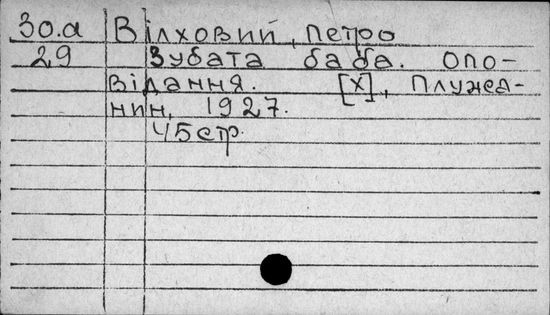 30.а Вілховий, Петро
29 Зубата баба. Опо-
відання. [Х], Плужа-
нин, 1927.
45 стр.